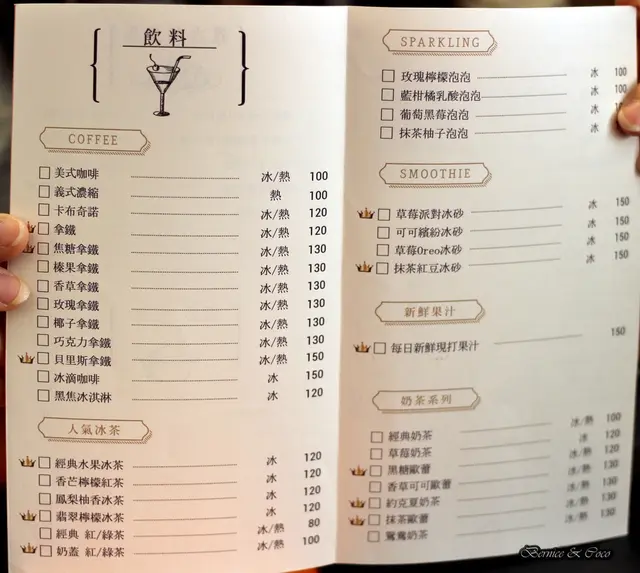 飲料
COFFEE
美式咖啡 冰/熱 100
義式濃縮 熱 100
卡布奇諾 冰/熱 120
拿鐵 冰/熱 120
焦糖拿鐵 冰/熱 130
榛果拿鐵 冰/熱 130
香草拿鐵 冰/熱 130
玫瑰拿鐵 冰/熱 130
椰子拿鐵 冰/熱 130
巧克力拿鐵 冰/熱 130
貝里斯拿鐵 冰/熱 150
冰滴咖啡 冰 150
黑焦冰淇淋 冰 120
人氣冰茶
經典水果冰茶 冰 120
香芒檸檬紅茶 冰 120
鳳梨柚香冰茶 冰 120
翡翠檸檬冰茶 冰 120
經典 紅/綠茶 冰/熱 80
奶蓋 紅/綠茶 冰/熱 100
SPARKLING
玫瑰檸檬泡泡 冰 100
藍柑橘乳酸泡泡 冰 100
葡萄黑莓泡泡 冰 100
抹茶柚子泡泡 冰
SMOOTHIE
草莓派對冰砂 冰 150
可可繽紛冰砂 冰 150
草莓Oreo冰砂 冰 150
抹茶紅豆冰砂 冰 150
新鮮果汁
每日新鮮現打果汁 150
奶茶系列
經典奶茶 冰/熱 100
草莓奶茶 冰 120
黑糖歐蕾 冰/熱 120
香草可可歐蕾 冰/熱 130
約克夏奶茶 冰/熱 130
抹茶歐蕾 冰/熱 130
鴛鴦奶茶 冰/熱 130
Bernice & Coco